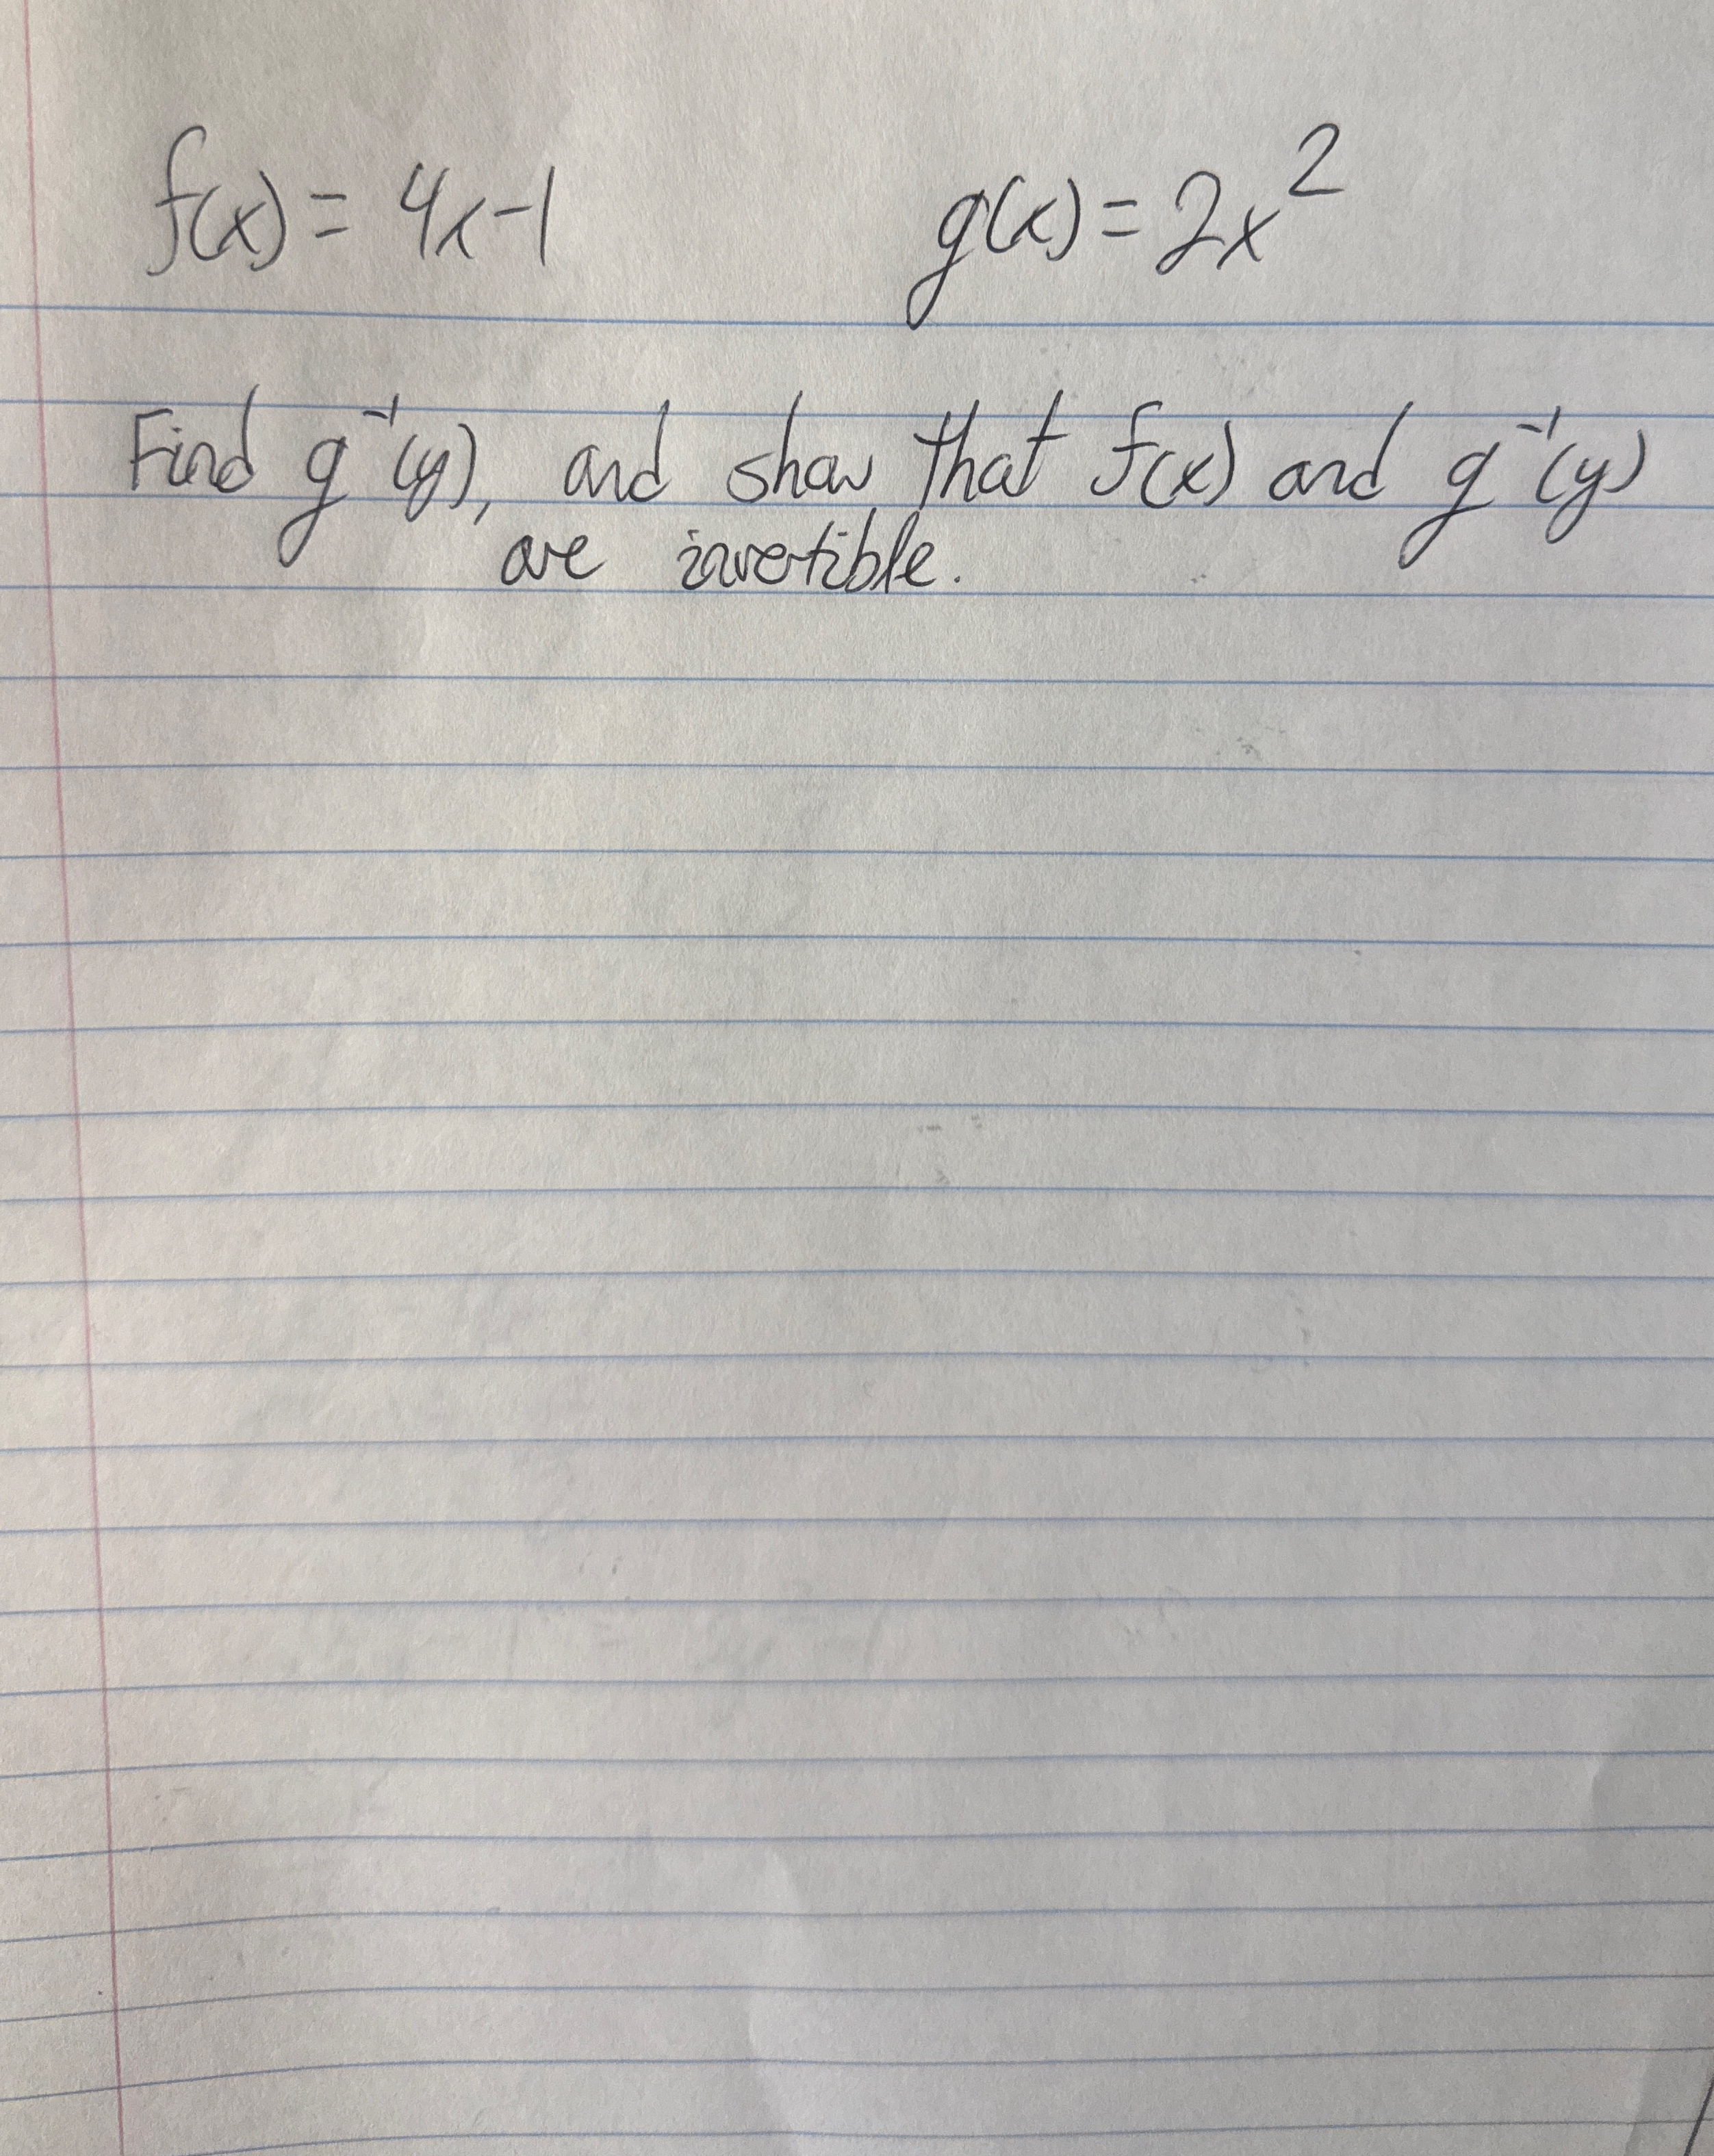 f(x) = 4x-1 g(x) = 2x²
Find g⁻¹(y), and show that f(x) and g⁻¹(y)
are invertible.